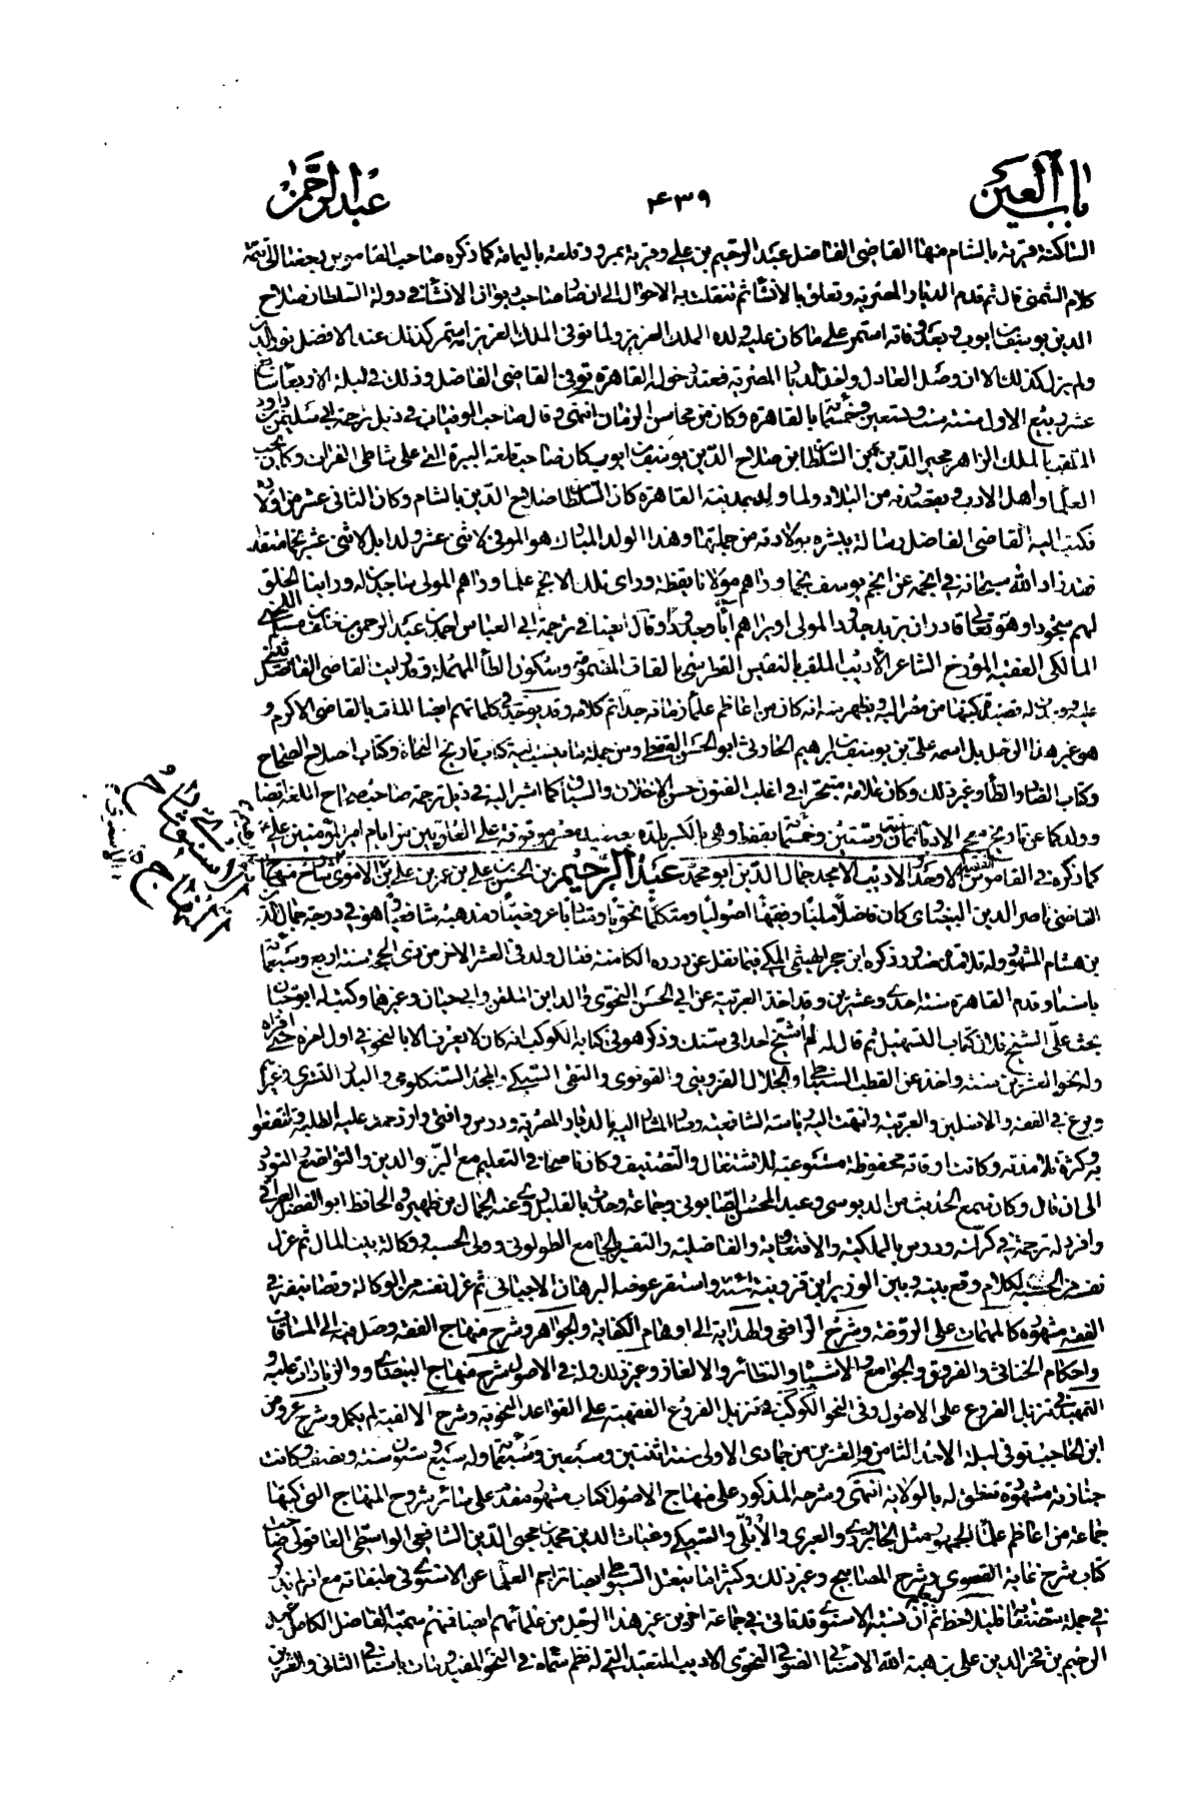 باب العين
٤٣٩
عبد الرحمن
الساكنة قرية بالشام منها القاضي الفاضل عبد الرحيم بن علي وقرية بمرو وقلعة باليمامة كما ذكره صاحب القاموس رجعنا الى تتمة
كلام الشمني قال ثم قدم الديار المصرية وتعلق بالأنشاء ثم تنقلت به الاحوال الى ان صار صاحب ديوان الانشاء في دولة السلطان صلاح
الدين يوسف بن ايوب وبعد وفاته استمر على ما كان عليه في ولده الملك العزيز ولما توفى الملك العزيز استمر كذلك عند الافضل نور الدين
ولم يزل كذلك الا ان وصل العادل واخذ الديار المصرية فعند دخوله القاهرة توفى القاضي الفاضل وذلك في ليلة الاربعاء سابع
عشر ربيع الاول سنة ست وتسعين وخمسمائة بالقاهرة وكان من محاسن الزمان انتهى وقال صاحب الوفيات في ذيل ترجمة ابي سليمن داود
الملقب بالملك الزاهر مجير الدين ابن السلطان صلاح الدين يوسف بن ايوب كان صاحب قلعة البيرة التي على شاطئ الفرات وكان يحب
العلماء واهل الادب ويقصدونه من البلاد ولما ولد بمدينة القاهرة كان السلطان صلاح الدين بالشام وكان الثاني عشر من اولاده
فكتب اليه القاضي الفاضل رسالة يبشره بولادته من جملتها وهذا الولد المبارك هو الموفي لاثنى عشر ولدا بل لاثنى عشر نجما متقدا
فقد زاد الله سبحانه في انجمه عن انجم يوسف نجما ورآهم مولانا يقظة وراى تلك الانجم حلما ورآهم المولى ساجدين له وراينا الخلق
لهم سجودا وهو تعالى قادر ان يزيد جدود المولى او يراهم آباء وجدودا وقال ايضا في ترجمة ابي العباس احمد بن عبد الرحمن بن خلف اللخمي
المالكي الفقيه المؤرخ الشاعر الأديب الملقب بالنفيس القطرسي بالقاف المضمومة وسكون الطاء المهملة وقد رايت القاضي الفاضل
قصيدة كتبها من مصر اليه ويظهر منه انه كان من اعاظم علماء زمانه جدا تم كلامه وقد يوجد في كلماتهم ايضا الملقب بالقاضي الاكرم و
هو غير هذا الرجل بل اسمه علي بن يوسف بن ابرهيم الحارثي ابو الحسن القفطي ومن جملة ما ينسب اليه كتاب تاريخ النحاة وكتاب اصلاح الصحاح
وكتاب الضاد والظاء وغير ذلك وكان علامة متبحرا في اغلب الفنون حسن الاخلاق والسياق كما اشير اليه في ذيل ترجمة صاحب صحاح اللغة ايضا
وولد كما عن تاريخ معجم الادباء ثمان وستين وخمسمائة بقفط وهي بالكسر بلدة بصعيد مصر موقوفة على العلويين من ايام امير المؤمنين علي
كما ذكره في القاموس الفقيه الاوحد الاديب الامجد جمال الدين ابو محمد عبد الرحيم بن الحسن بن علي بن عمر بن علي بن الاموي شارح منهاج
القاضي ناصر الدين البيضاوي كان فاضلا مليا وفقيها اصوليا ومتكلما نحويا وفنانا عروضيا ومذهبه شافعيا هو في درجة جمال الدين
بن هشام المشهور وله تلاقا من مصر وذكره ابن حجر الهيثمي المكي فيما نقل عن درره الكامنة فقال ولد في العشر الاخر من ذي الحجة سنة اربع وسبعمائة
باسنا وقدم القاهرة سنة احدى وعشرين وقد اخذ العربية عن ابي الحسن النحوي والد ابن الملقن وابي حيان وغيرهما وكتب له ابو حيان
بحث علي الشيخ فلان كتاب التسهيل ثم قال له لم أشيخ احدا في سنك وذكر هو في كتابه الكوكب انه كان لا يعرف الا بالنحو في اول امره حتى اقراه
وله نحو العشرين سنة واخذ عن القطب السنباطي والجلال القزويني والقونوي والتقي السبكي والمجد السنكلومي والبدر التستري وغيرهم
وبرع في الفقه والاصلين والعربية وانتهت اليه رياسة الشافعية وصار المشار اليه بالديار المصرية ودرس وافتى وازدحمت عليه الطلبة وانتفعوا
به وكثرت تلامذته وكانت اوقاته محفوظة مستوعبة للاشتغال والتصنيف وكان ناصحا في التعليم مع البر والدين والتواضع والتودد
الى ان قال وكان سمع الحديث من الدبوسي وعبد المحسن الصابوني وجماعة وحدث بالقليل روى عنه الجمال بن ظهيرة والحافظ ابو الفضل العراقي
وافرد له ترجمة في كراسة ودرس بالملكية والاقبغاوية والفاضلية والتفسير بالجامع الطولوني وولي الحسبة ووكالة بيت المال ثم عزل
نفسه من الحسبة لكلام وقع بينه وبين الوزير ابن قزوينة واستقر عوضه البرهان الاخنائي ثم عزل نفسه من الوكالة وتصانيفه في
الفقه مشهورة كالمهمات على الروضة وشرح الرافعي والهداية الى اوهام الكفاية والجواهر وشرح منهاج الفقه وصل فيه الى المساقات
واحكام الخناثى والفروق والجوامع والاشباه والنظائر والالغاز وغير ذلك وله في الاصول شرح منهاج البيضاوي والزيادات عليه و
التمهيد في تنزيل الفروع على الاصول وفي النحو الكوكب في تنزيل الفروع الفقهية على القواعد النحوية وشرح الالفية لم يكمل وشرح عروض
ابن الحاجب توفى ليلة الاحد الثامن والعشرين من جمادى الاولى سنة اثنتين وسبعين وسبعمائة وله سبع وستون سنة ونصف وكانت
جنازته مشهورة تنطق له بالولاية انتهى وشرحه المذكور على منهاج الاصول كتاب مشهور مقدم على سائر شروح المنهاج التي كتبها
جماعة من اعاظم علماء الجمهور مثل الجاربردي والعبري والأبلي والسبكي وغياث الدين محمد بن محيي الدين الشافعي الواسطي العاقولي صاحب
كتاب شرح غاية القصوى وشرح المصابيح وغير ذلك وكثيرا ما ينقل السيوطي ايضا تراجم العلماء عن الاسنوي في طبقاته مع انه لم يذكر
في جملة مصنفاته فليلاحظ ثم ان نسبة الاسنوي قد تأتي في جماعة اخرين غير هذا الرجل من علمائهم ايضا فمنهم سميه الفاضل الكامل عبد
الرحيم بن فخر الدين علي بن هبة الله الاسنائي الصوفي النحوي الاديب المتعبد الذي له نظم سماه في النحو المفيد ومات باسنا في الثاني والعشرين
الاسنوي شارح
المنهاج